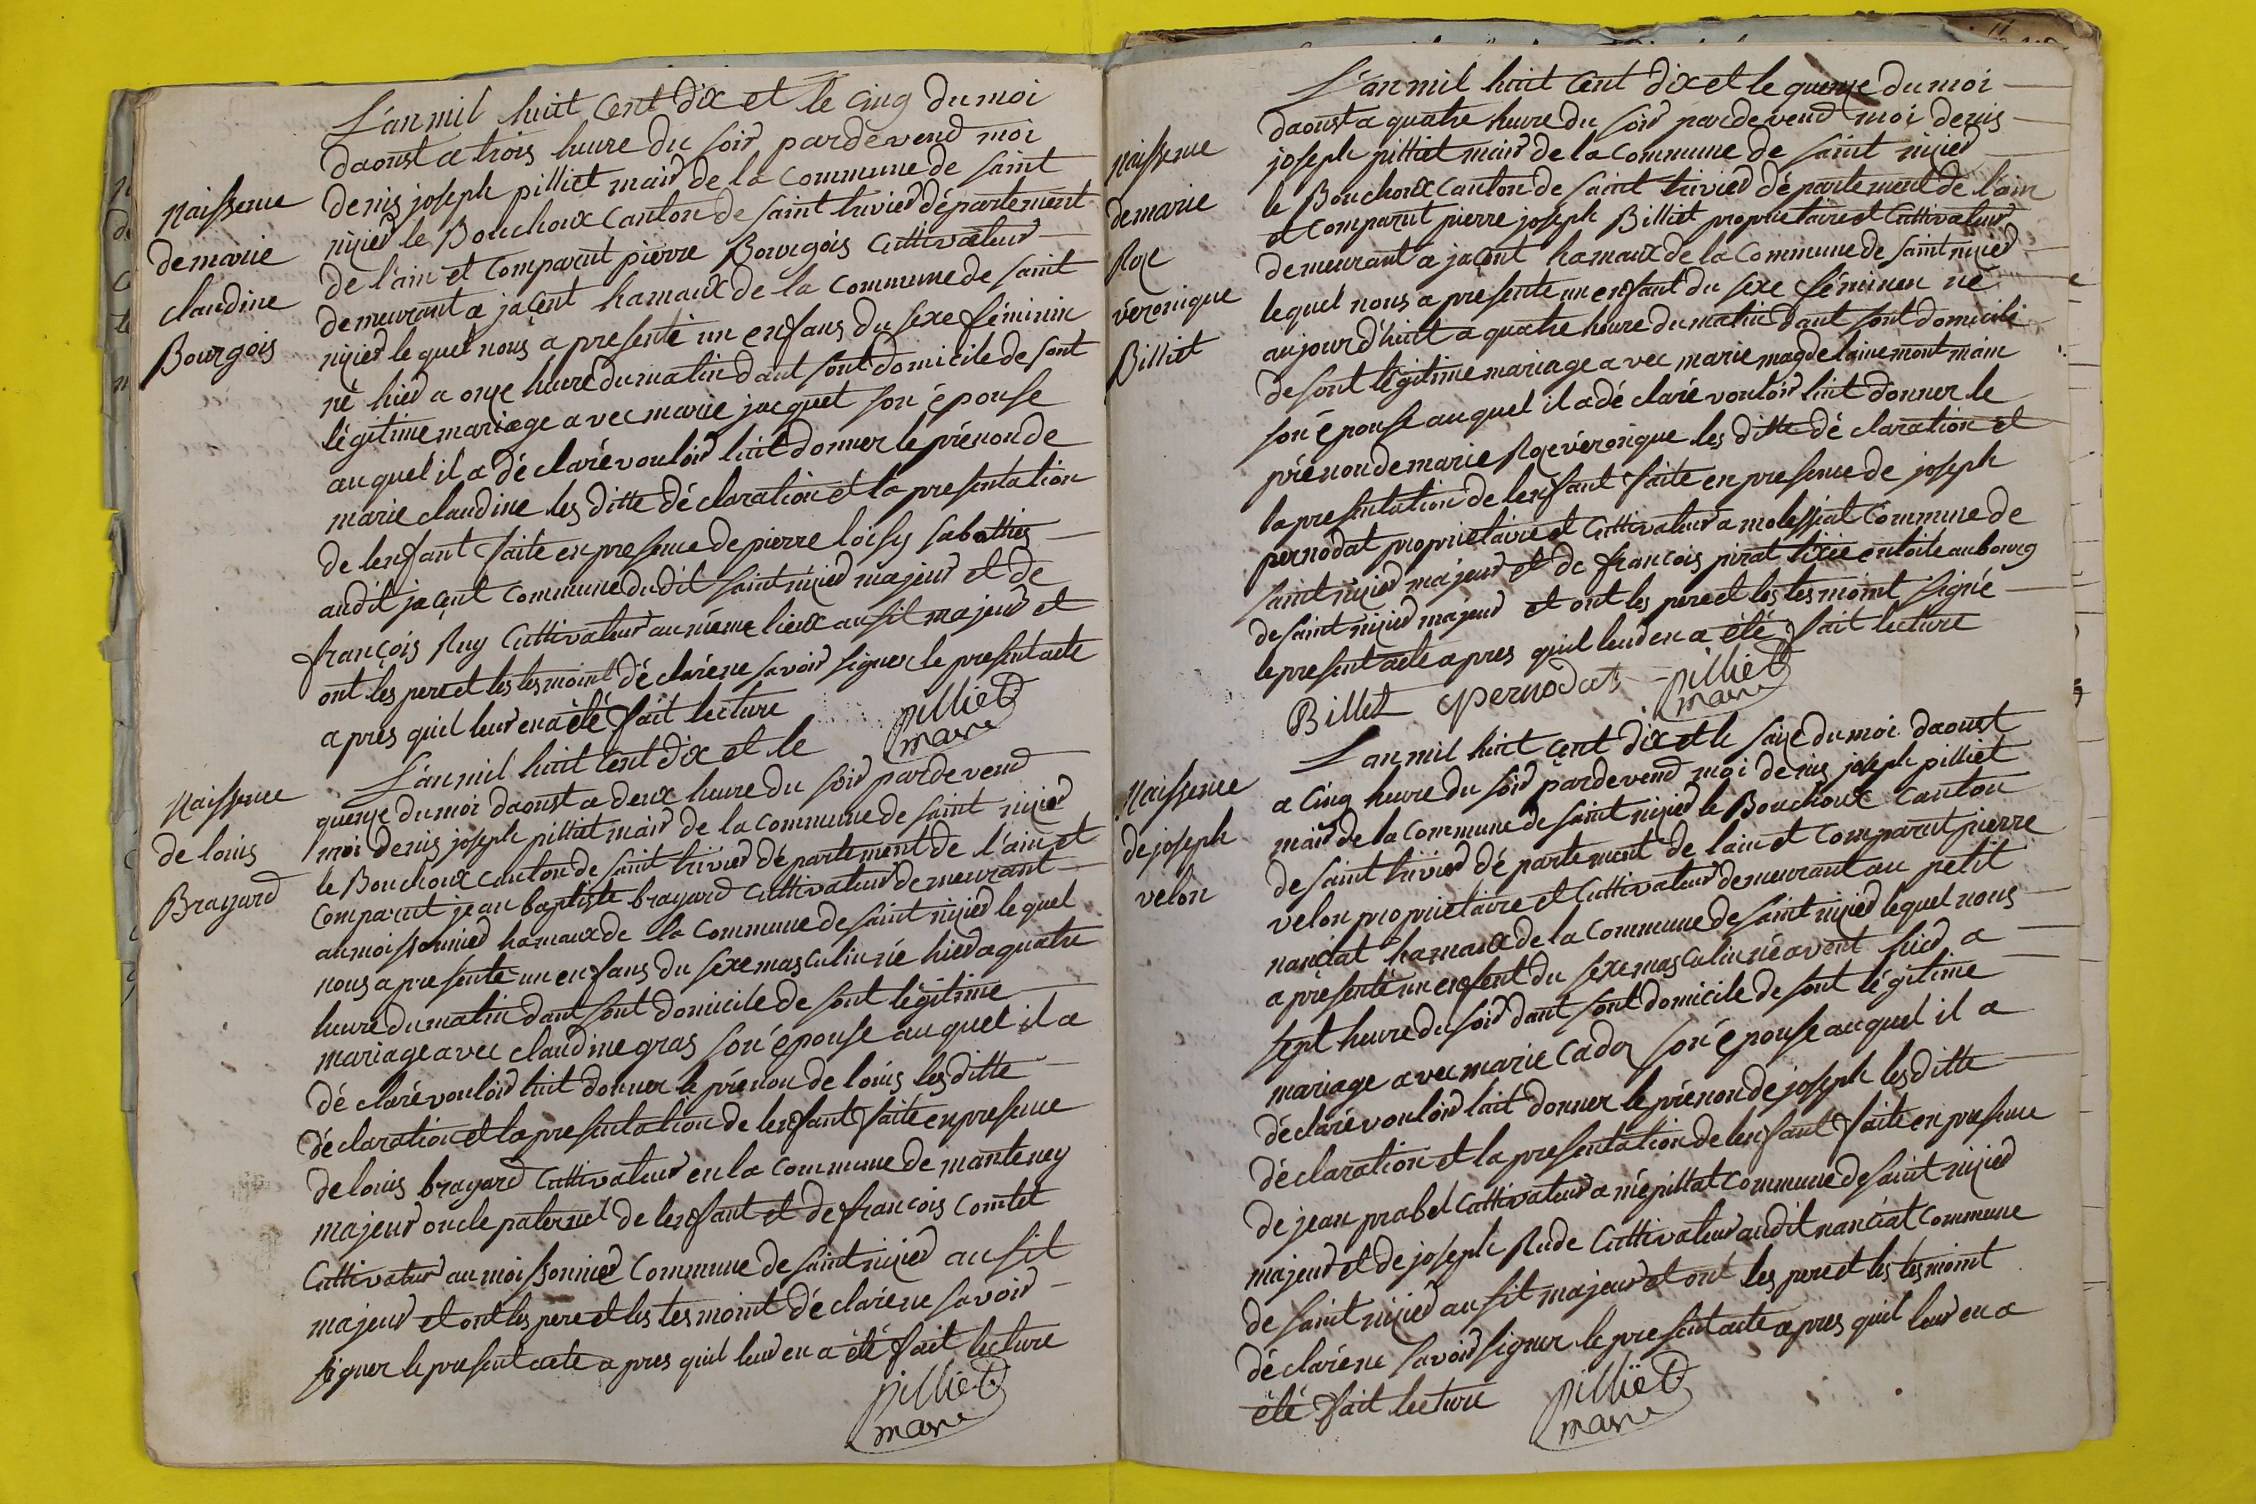 Naissence
de marie
claudine
Bourgois
L'an mil huit cent dix et le cinq du moi
daoust a trois heure du soir pardevend moi
denis joseph pilliet mair de la commune de saint
nizier le Bouchoux canton de saint trivier département
de l'ain et comparut pierre Bourgois cuttivateur
demeurant a jacent hamaux de la commune de saint
nizier lequel nous a presenté un enfans du sexe féminin
né hier a onze heure du matin dant sont domicile de sont
légitime mariage avec marie jacquet son épouse
auquel il a déclaré vouloir luit donner le prénon de
marie claudine les ditte déclaration et la presentation
de lenfant faite en presence de pierre loisy sabottier
audit jacent commune dudit saint nizier majeur et de
françois Ruy cuttivateur au même lieux ausit majeur et
ont les pere et les tesmoint déclaré ne savoir signer le present acte
apres quil leur en a été fait lecture
pilliet
maire
Naissence
de louis
Brayard
L'an mil huit cent dix et le
quenze du moi daoust a deux heure du soir pardevend
moi denis joseph pilliet mair de la commune de saint nizier
le Bouchoux canton de saint trivier département de l'ain et
comparut jean baptiste brayard cuttivateur demeurant
au moissonnier hamaux de la commune de saint nizier lequel
nous a presenté un enfans du sexe masculin né hier a quatre
heure du matin dant sont domicile de sont légitime
mariage avec claudine gras son épouse auquel il a
déclaré vouloir luit donner le prénon de louis les ditte
déclaration et la presentation de lenfant faite en presence
de louis brayard cuttivateur en la commune de manteney
majeur oncle paternel de lenfant et de françois comtet
cuttivateur au moissonnier commune de saint nizier ausit
majeur et ont les pere et les tesmoint déclaré ne savoir
signer le present acte apres quil leur en a été fait lecture
pilliet
maire
11
Naissence
de marie
Roze
véronique
Billiet
L'an mil huit cent dix et le quenze du moi
daoust a quatre heure du soir pardevend moi denis
joseph pilliet mair de la commune de saint nizier
le Bouchoux canton de saint trivier département de l'ain
et comparut pierre joseph Billiet proprietaire et cuttivateur
demeurant a jacent hamaux de la commune de saint nizier
lequel nous a presente un enfant du sexe féminen né
aujourd'huit a quatre heure du matin dant sont domicile
de sont légitime mariage avec marie magdelaine montmain
son épouse auquel il a déclaré vouloir luit donner le
prénon de marie Roze véronique les ditte déclaration et
la presentation de lenfant faite en presence de joseph
pernodat proprietaire et cuttivateur a molessiat commune de
saint nizier majeur et de françois pirat tixie entoile au bourg
de saint nizier majeur et ont les pere et les tesmoint signé
le present acte apres quil leur en a été fait lecture
Billet Pernodat pilliet
maire
Naissence
de joseph
velon
L'an mil huit cent dix et le saize du moi daoust
a cinq heure du soir pardevend moi denis joseph pilliet
mair de la commune de saint nizier le Bouchoux canton
de saint trivier département de lain et comparut pierre
velon proprietaire et cuttivateur demeurant au petit
nanciat hamaux de la commune de saint nizier lequel nous
a presenté un enfent du sexe masculin né avent hier a
sept heure du soir dant sont domicile de sont légitime
mariage avec marie cadoz son épouse auquel il a
déclaré vouloir luit donner le prénon de joseph les ditte
déclaration et la presentation de lenfant faite en presence
de jean prabel cuttivateur a mépillat commune de saint nizier
majeur et de joseph Rude cuttivateur audit nanciat commune
de saint nizier ausit majeur et ont les pere et les tesmoint
déclaré ne savoir signer le present acte apres quil leur en a
été fait lecture pilliet
maire